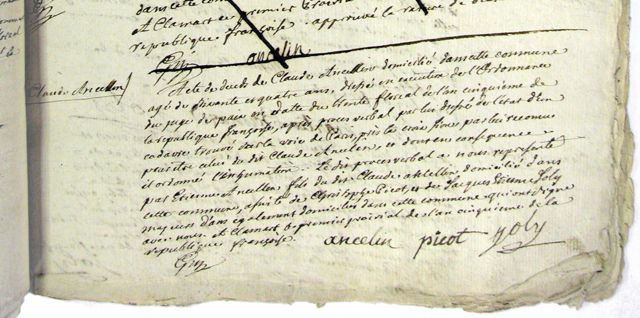 dans cette commune
et Clamart ce premier
republique françoise. approuvé la rature de
ancelin
Claude Ancellen
Acte de deceds de Claude Ancellen domicilié dans cette commune
agé de soixante et quatre ans, dressé en execution de l'Ordonnance
du juge de paix en datte du trente floreal de l'an cinquieme de
la republique françoise, après proces verbal par lui dressé de l'etat d'un
cadavre trouvé sur la voie de près la croix par lui reconnu
pour etre celui du dit Claude Ancelen et dont en consequence
il ordonne l'inhumation. Le dit proces verbal a nous representé
par Etienne Ancellen fils du dit Claude domicilié dans
cette commune, assisté de Christophe Picot, et de Jacques Etienne Joly
majeurs d'ans egalement domiciliés dans cette commune qui ont signé
avec nous. et Clamart ce premier prairial de l'an cinquieme de la
republique françoise.
ancelin picot joly